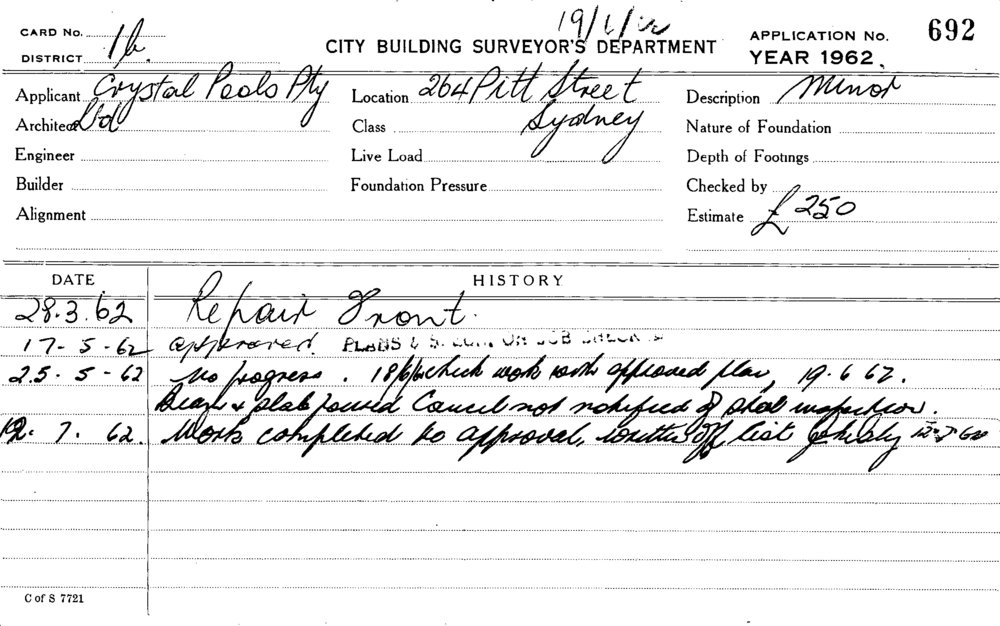 CARD No.
DISTRICT 1b.
19/6/62
CITY BUILDING SURVEYOR'S DEPARTMENT
APPLICATION No. 692
YEAR 1962.
Applicant Crystal Pools Pty
Ltd
Architect
Engineer
Builder
Alignment
Location 264 Pitt Street
Sydney
Class
Live Load
Foundation Pressure
Description Minor
Nature of Foundation
Depth of Footings
Checked by
Estimate £250
DATE HISTORY
28.3.62 Repair Front.
17-5-62 approved. PLANS & ON JOB CHECK
25-5-62 No progress. 18/6/62 check work with approved plan, 19.6 62.
Beam & slab poured Council not notified of steel inspection.
12.7.62. Work completed to approval, written off list 12-7-62
C of S 7721